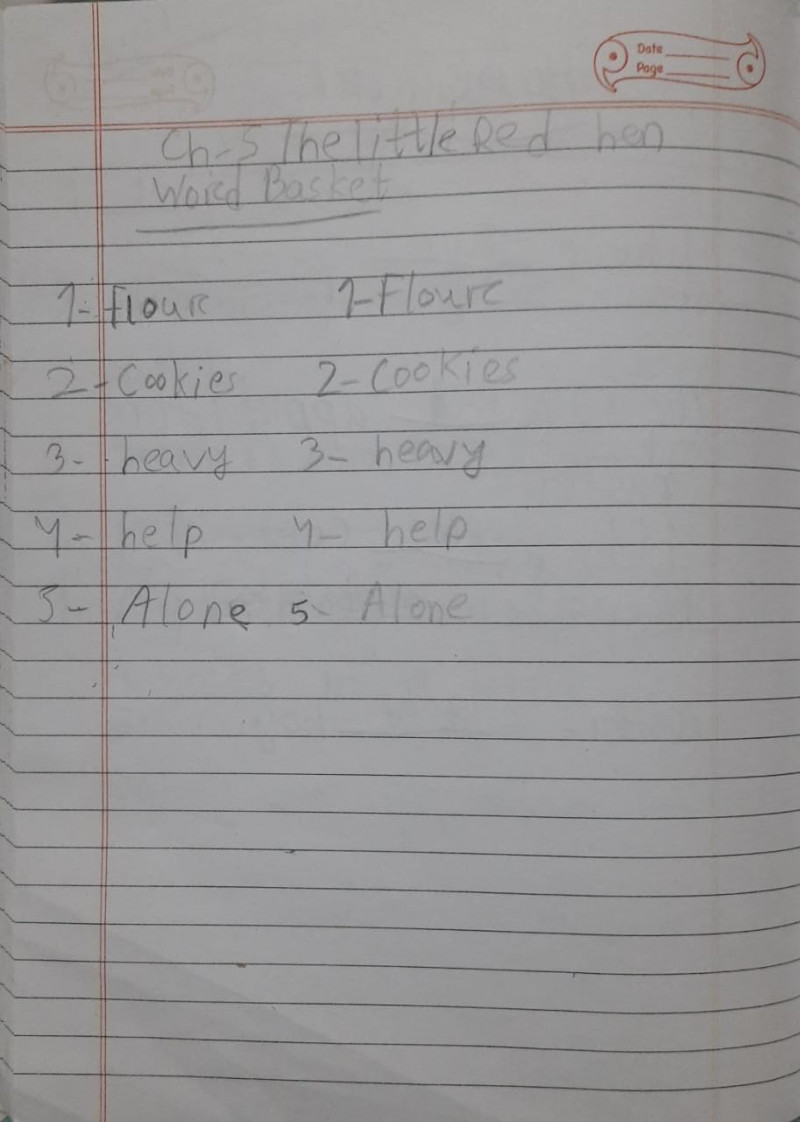 Date
Page
Ch-5 The little Red hen
Word Basket
1- flour 1- Flour
2- Cookies 2- Cookies
3- heavy 3- heavy
4- help 4- help
5- Alone 5- Alone